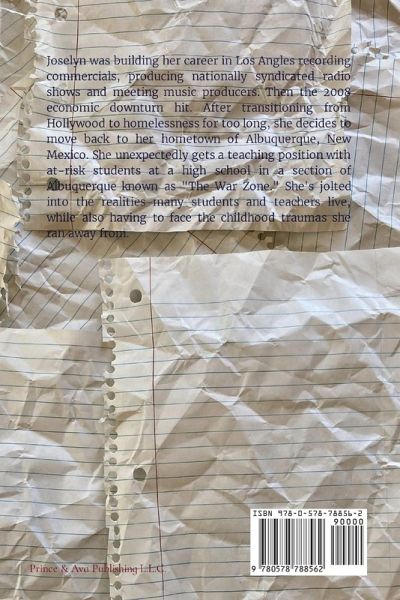 Joselyn was building her career in Los Angles recording
commercials, producing nationally syndicated radio
shows and meeting music producers. Then the 2008
economic downturn hit. After transitioning from
Hollywood to homelessness for too long, she decides to
move back to her hometown of Albuquerque, New
Mexico. She unexpectedly gets a teaching position with
at-risk students at a high school in a section of
Albuquerque known as "The War Zone." She's jolted
into the realities many students and teachers live,
while also having to face the childhood traumas she
ran away from.
ISBN 978-0-578-78856-2
90000
9 780578 788562
Prince & Ava Publishing L.L.C.